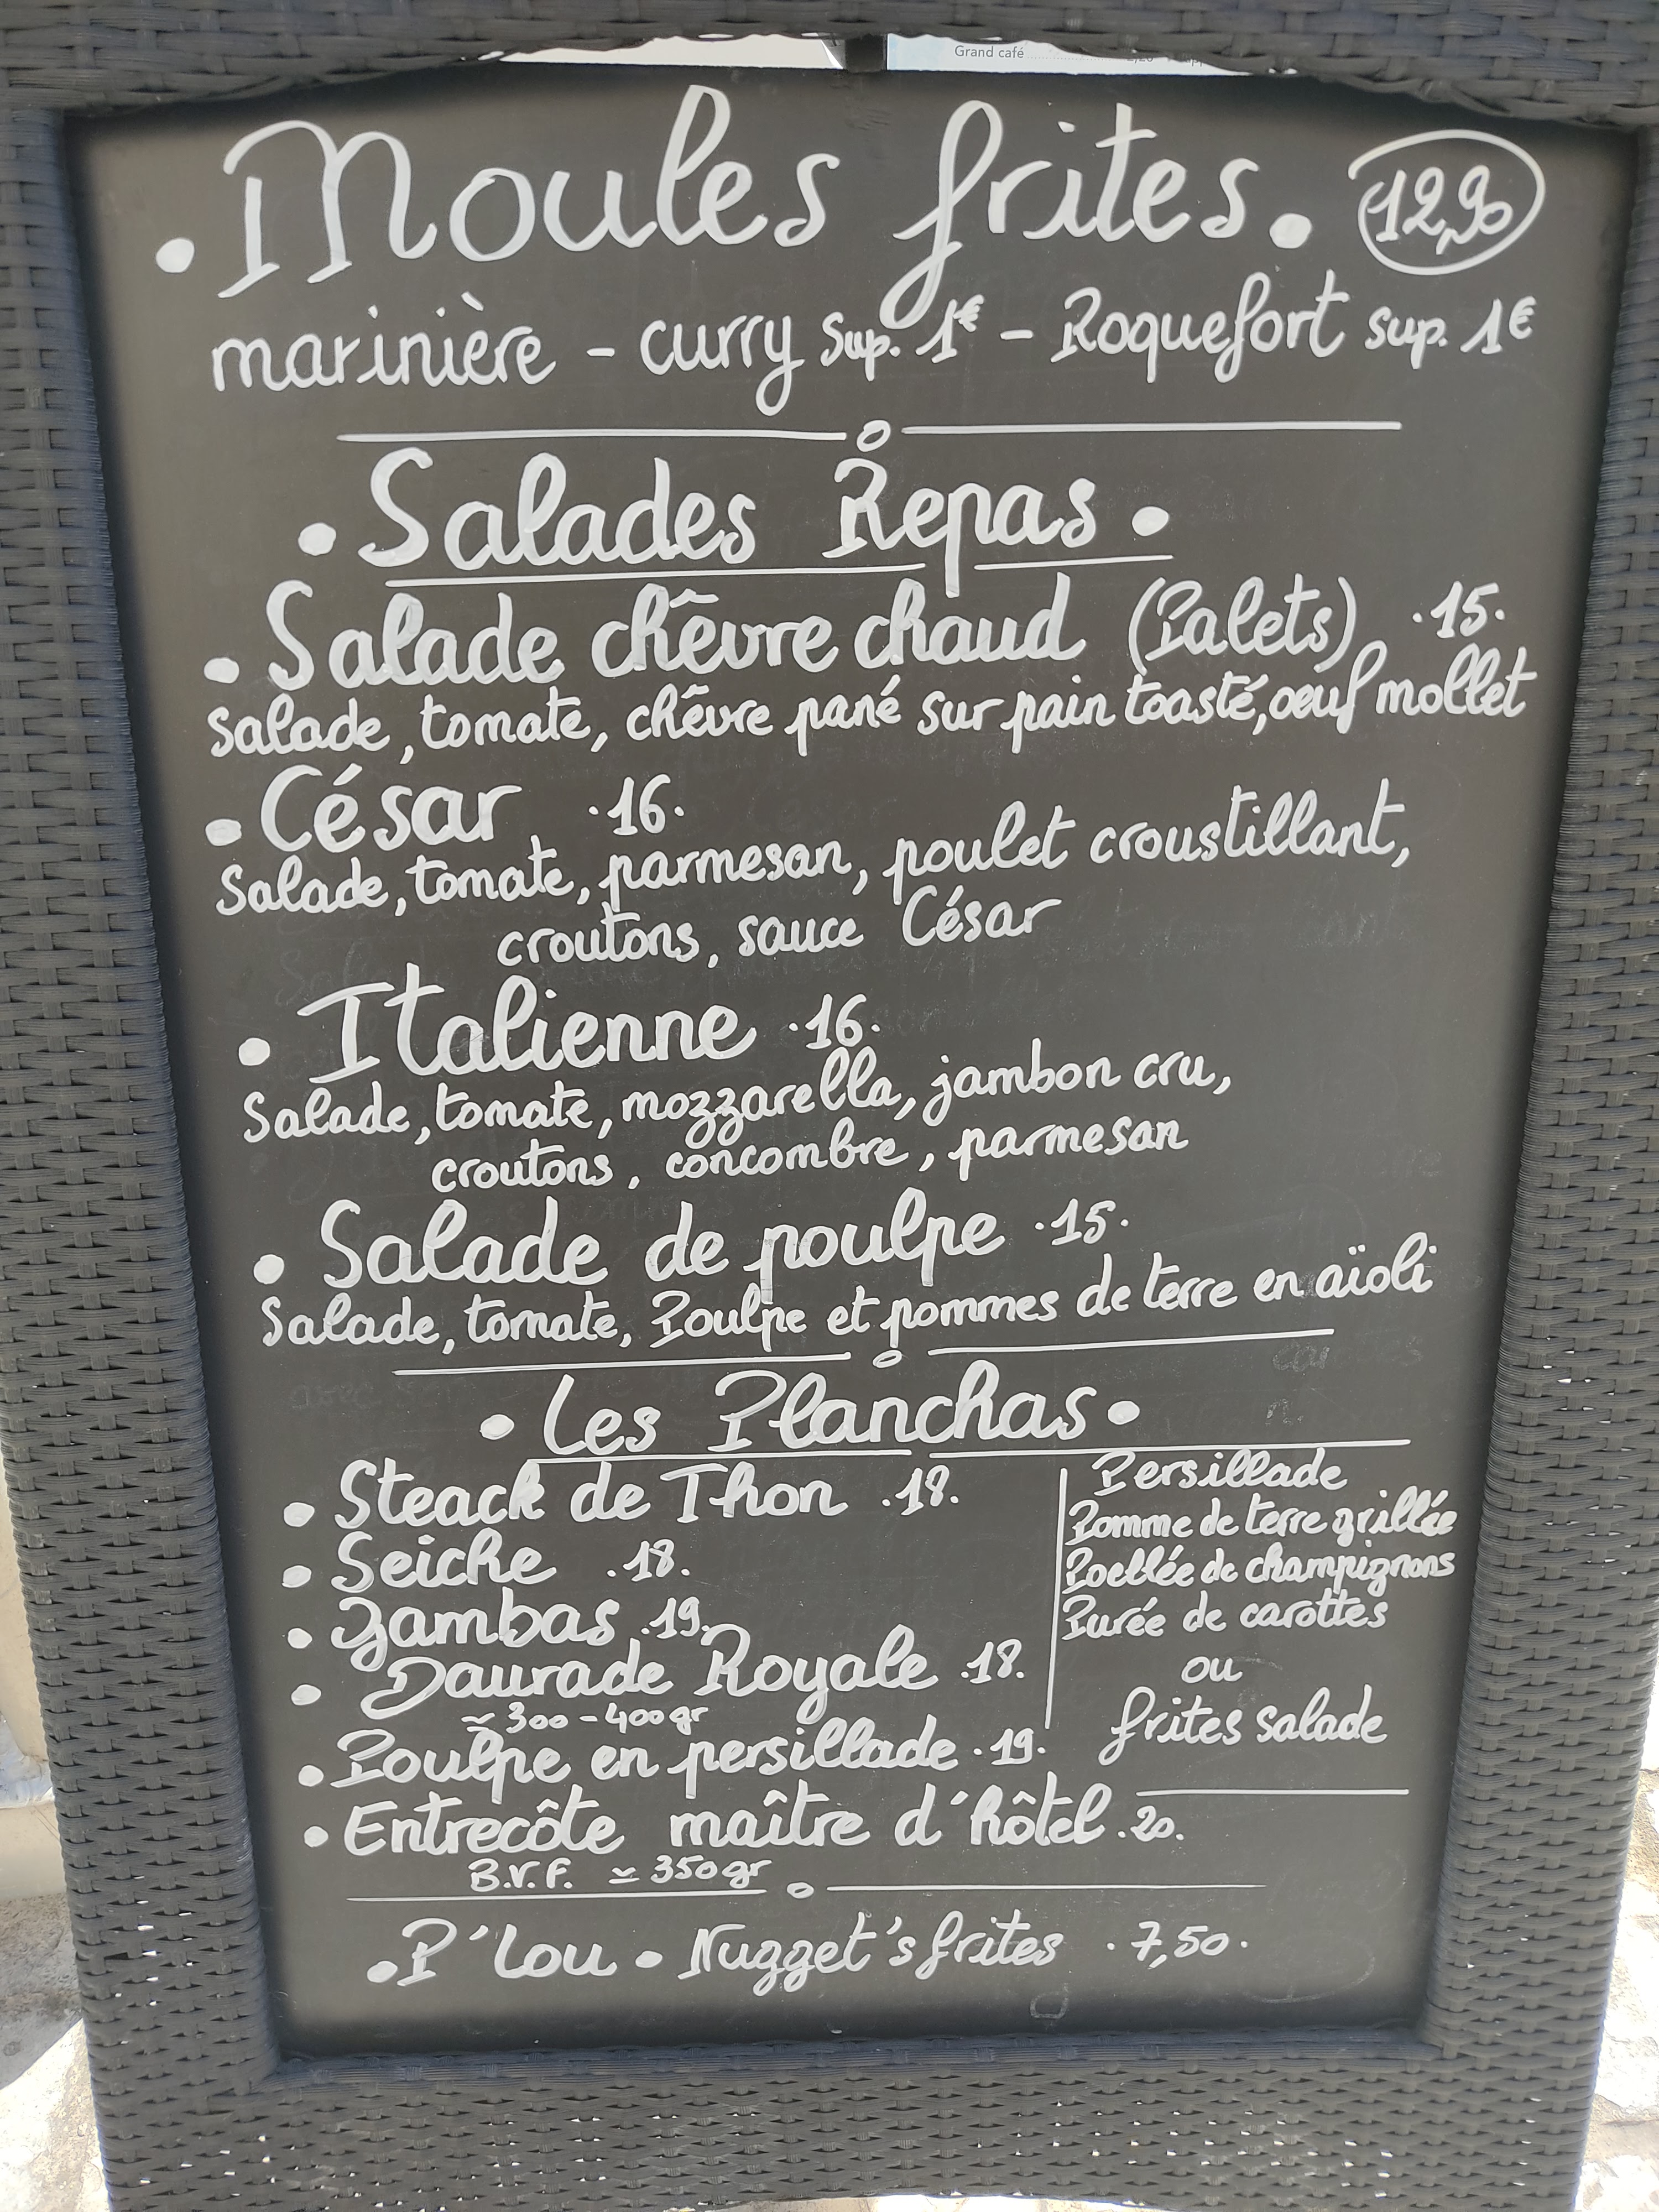 Grand café
• Moules frites. 12,90
marinière - curry sup. 1€ - Roquefort sup. 1€
• Salades Repas •
• Salade chêvre chaud (Palets) .15.
Salade, tomate, chêvre pané sur pain toasté, oeuf mollet
• César .16.
Salade, tomate, parmesan, poulet croustillant,
croutons, sauce César
• Italienne .16.
Salade, tomate, mozzarella, jambon cru,
croutons, concombre, parmesan
• Salade de poulpe .15.
Salade, tomate, Poulpe et pommes de terre en aïoli
• Les Planchas •
• Steack de Thon .18.
• Seiche .18.
• Gambas .19.
• Daurade Royale .18.
≃ 300 - 400gr
• Poulpe en persillade .19.
• Entrecôte maître d'hôtel .20.
B.V.F. ≃ 350gr
Persillade
Pomme de terre grillée
Poellée de champignons
Purée de carottes
ou
frites salade
• P'lou • Nugget's frites .7,50.